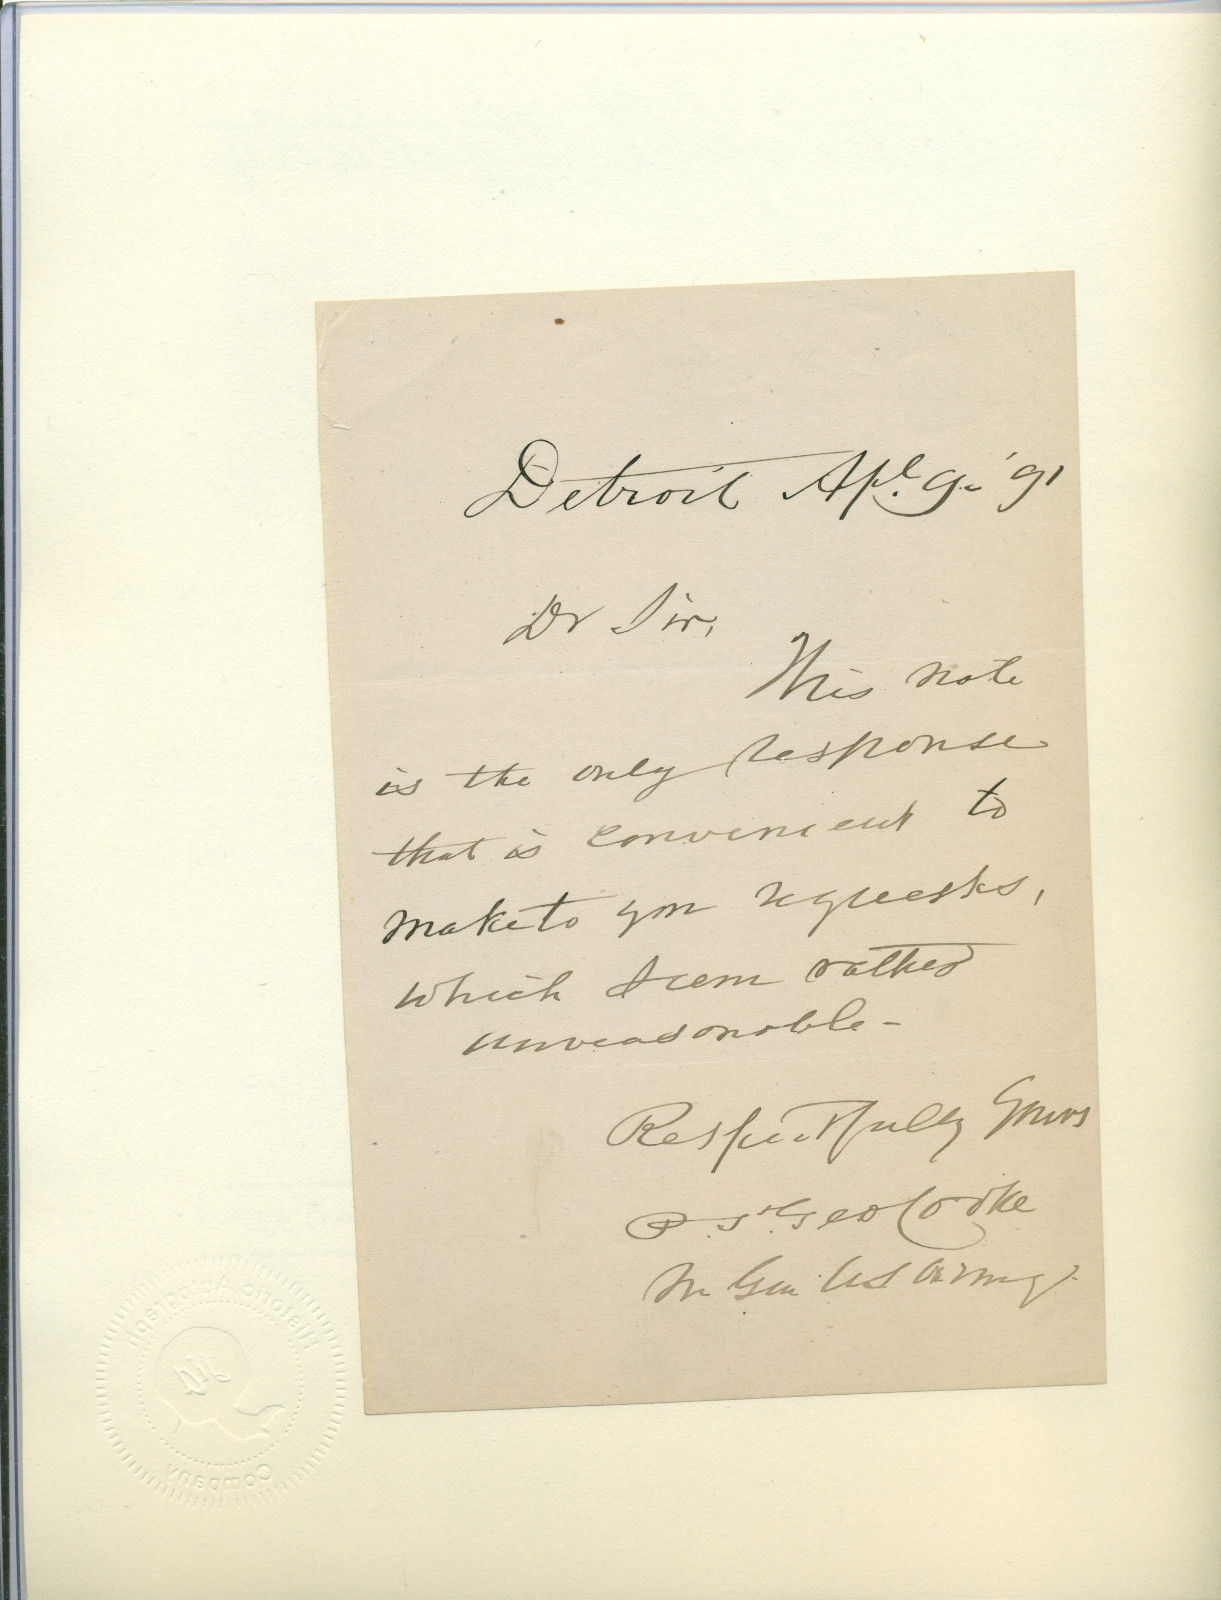 Detroit Apl. 9. '91
Dr Sir,
This note
is the only response
that is convenient to
make to you requests,
which seem rather
unreasonable -
Respectfully Yours
P. St. Geo Cooke
M Gen US Army.
Historic Autograph
Company